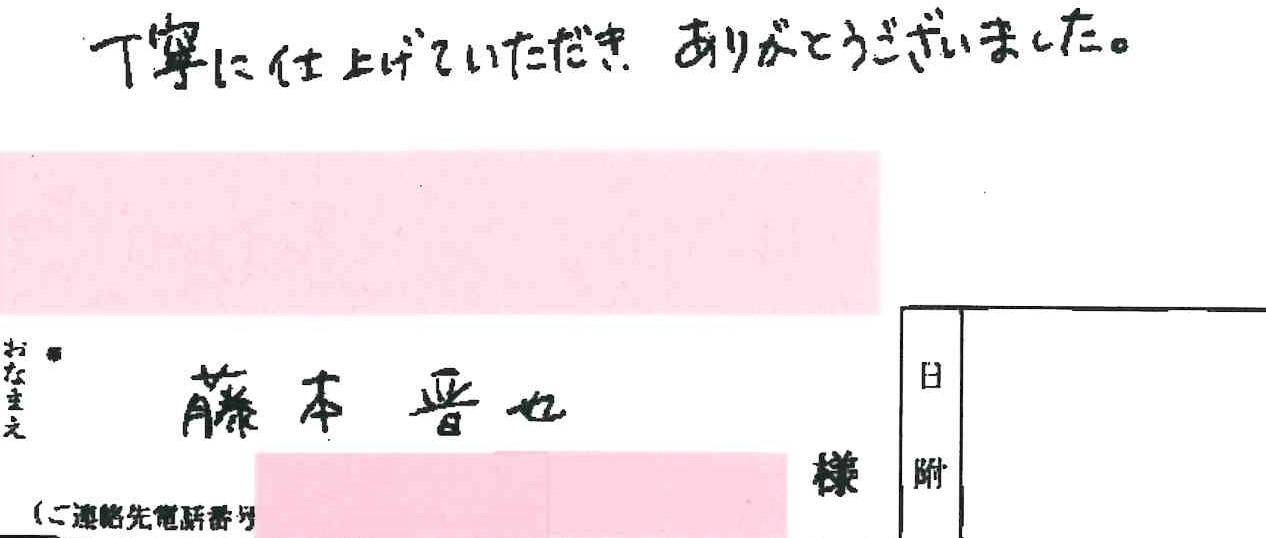 丁寧に仕上げていただき ありがとうございました。
おなまえ
藤本 晋也
様
日附
(ご連絡先電話番号